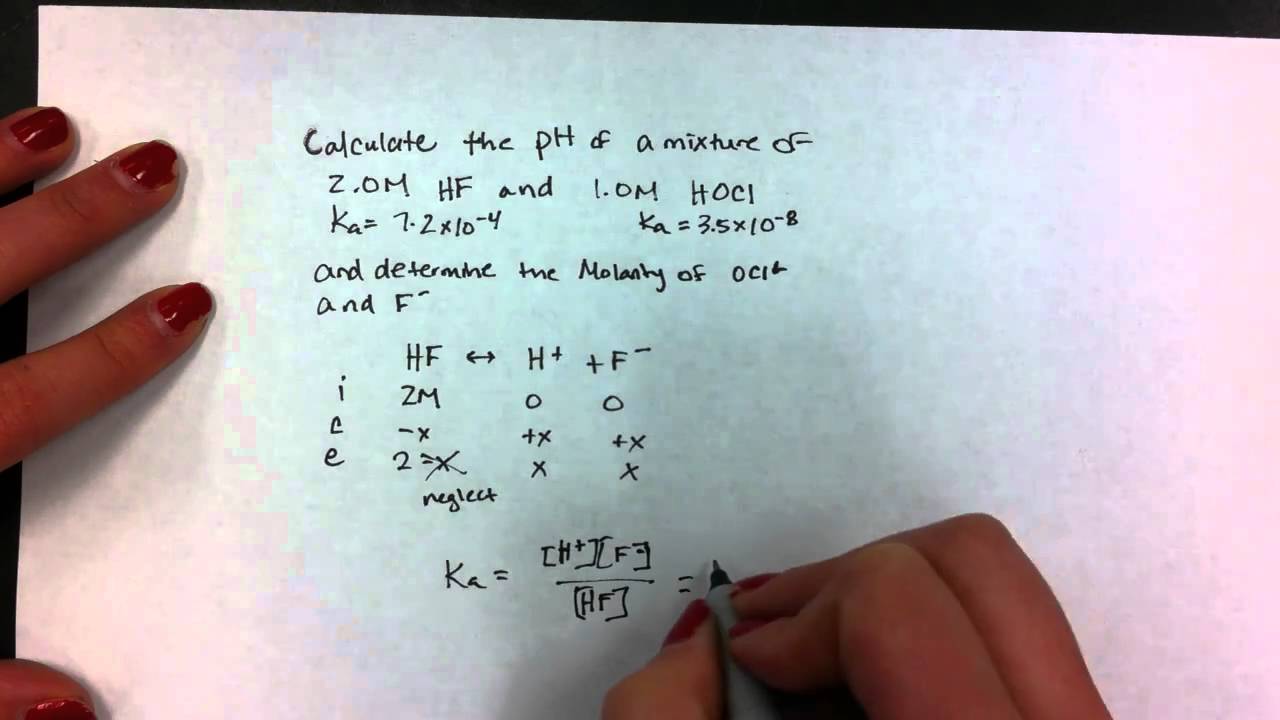 Calculate the pH of a mixture of
2.0M HF and 1.0M HOCl
Ka= 7.2×10⁻⁴ Ka = 3.5×10⁻⁸
and determine the Molarity of OCl⁻
and F⁻
HF ↔ H⁺ + F⁻
i 2M 0 0
c -x +x +x
e 2-x x x
neglect
Ka = [H⁺][F⁻] / [HF] =